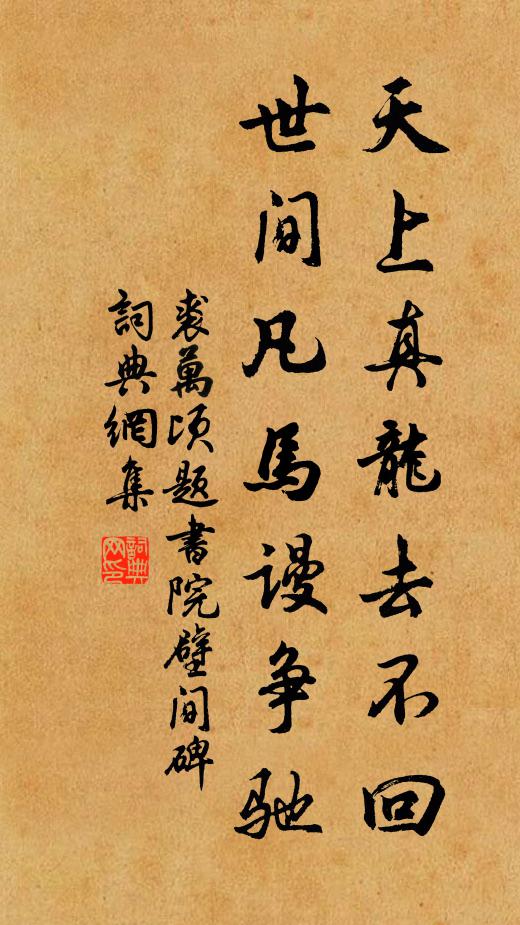 天上真龍去不回
世间凡馬謾争馳
裘萬頃题書院壁间碑
詞典網集
詞典网印